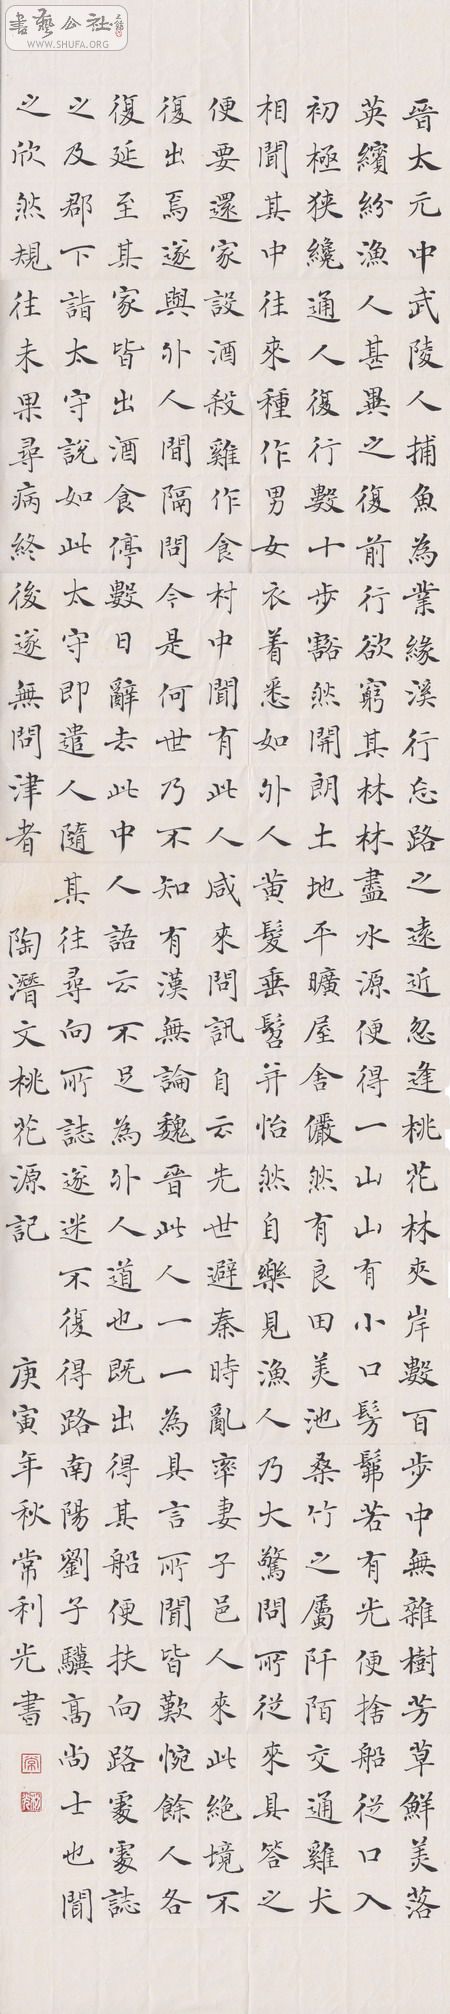 書藝公社
WWW.SHUFA.ORG
晉太元中武陵人捕魚為業緣溪行忘路之遠近忽逢桃花林夾岸數百步中無雜樹芳草鮮美落
英繽紛漁人甚異之復前行欲窮其林林盡水源便得一山山有小口髣髴若有光便捨船從口入
初極狹纔通人復行數十步豁然開朗土地平曠屋舍儼然有良田美池桑竹之屬阡陌交通雞犬
相聞其中往來種作男女衣着悉如外人黃髮垂髫并怡然自樂見漁人乃大驚問所從來具答之
便要還家設酒殺雞作食村中聞有此人咸來問訊自云先世避秦時亂率妻子邑人來此絕境不
復出焉遂與外人間隔問今是何世乃不知有漢無論魏晉此人一一為具言所聞皆歎惋餘人各
復延至其家皆出酒食停數日辭去此中人語云不足為外人道也既出得其船便扶向路處處誌
之及郡下詣太守說如此太守即遣人隨其往尋向所誌遂迷不復得路南陽劉子驥高尚士也聞
之欣然規往未果尋病終後遂無問津者 陶潛文桃花源記 庚寅年秋常利光書